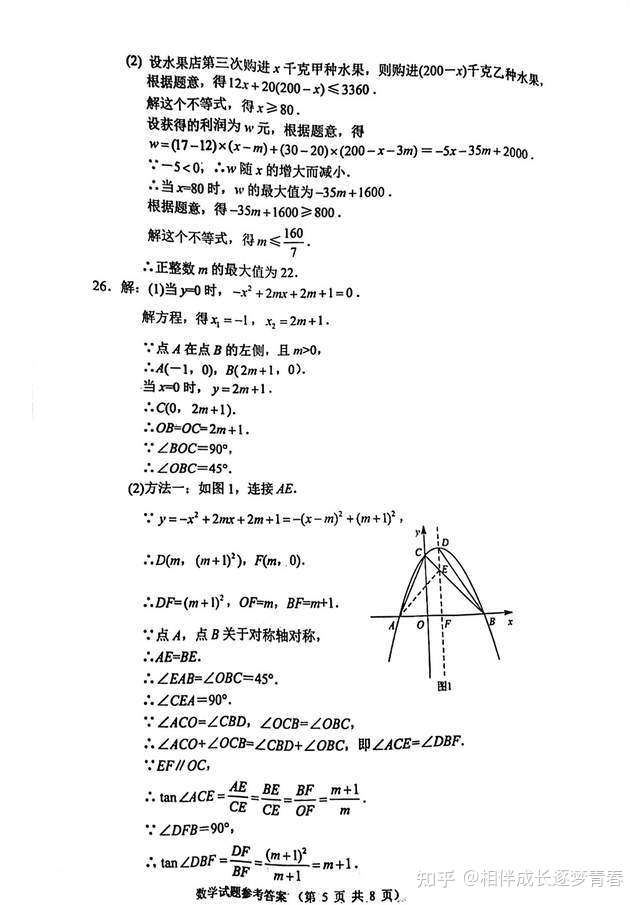 (2) 设水果店第三次购进 x 千克甲种水果，则购进(200－x)千克乙种水果，
根据题意，得12x+20(200－x)≤3360．
解这个不等式，得 x≥80．
设获得的利润为 w 元，根据题意，得
w=(17－12)×(x－m)+(30－20)×(200－x－3m)=－5x－35m+2000．
∵－5<0，∴w 随 x 的增大而减小．
∴当 x=80 时，w 的最大值为－35m+1600．
根据题意，得－35m+1600≥800．
解这个不等式，得 m≤160/7．
∴正整数 m 的最大值为 22．
26．解：(1)当 y=0 时，－x²+2mx+2m+1=0．
解方程，得 x₁=－1，x₂=2m+1．
∵点 A 在点 B 的左侧，且 m>0，
∴A(－1，0)，B(2m+1，0)．
当 x=0 时，y=2m+1．
∴C(0，2m+1)．
∴OB=OC=2m+1．
∵∠BOC=90°，
∴∠OBC=45°．
(2)方法一：如图 1，连接 AE．
∵y=－x²+2mx+2m+1=－(x－m)²+(m+1)²，
∴D(m，(m+1)²)，F(m，0)．
∴DF=(m+1)²，OF=m，BF=m+1．
∵点 A，点 B 关于对称轴对称，
∴AE=BE．
∴∠EAB=∠OBC=45°．
∴∠CEA=90°．
∵∠ACO=∠CBD，∠OCB=∠OBC，
∴∠ACO+∠OCB=∠CBD+∠OBC，即∠ACE=∠DBF．
∵EF∥OC，
∴tan∠ACE=AE/CE=BE/CE=BF/OF=(m+1)/m．
∵∠DFB=90°，
∴tan∠DBF=DF/BF=(m+1)²/(m+1)=m+1．
y
D
C
E
A
O
F
B
x
图1
数学试题参考答案 （第 5 页 共 8 页）
知乎 @相伴成长逐梦青春